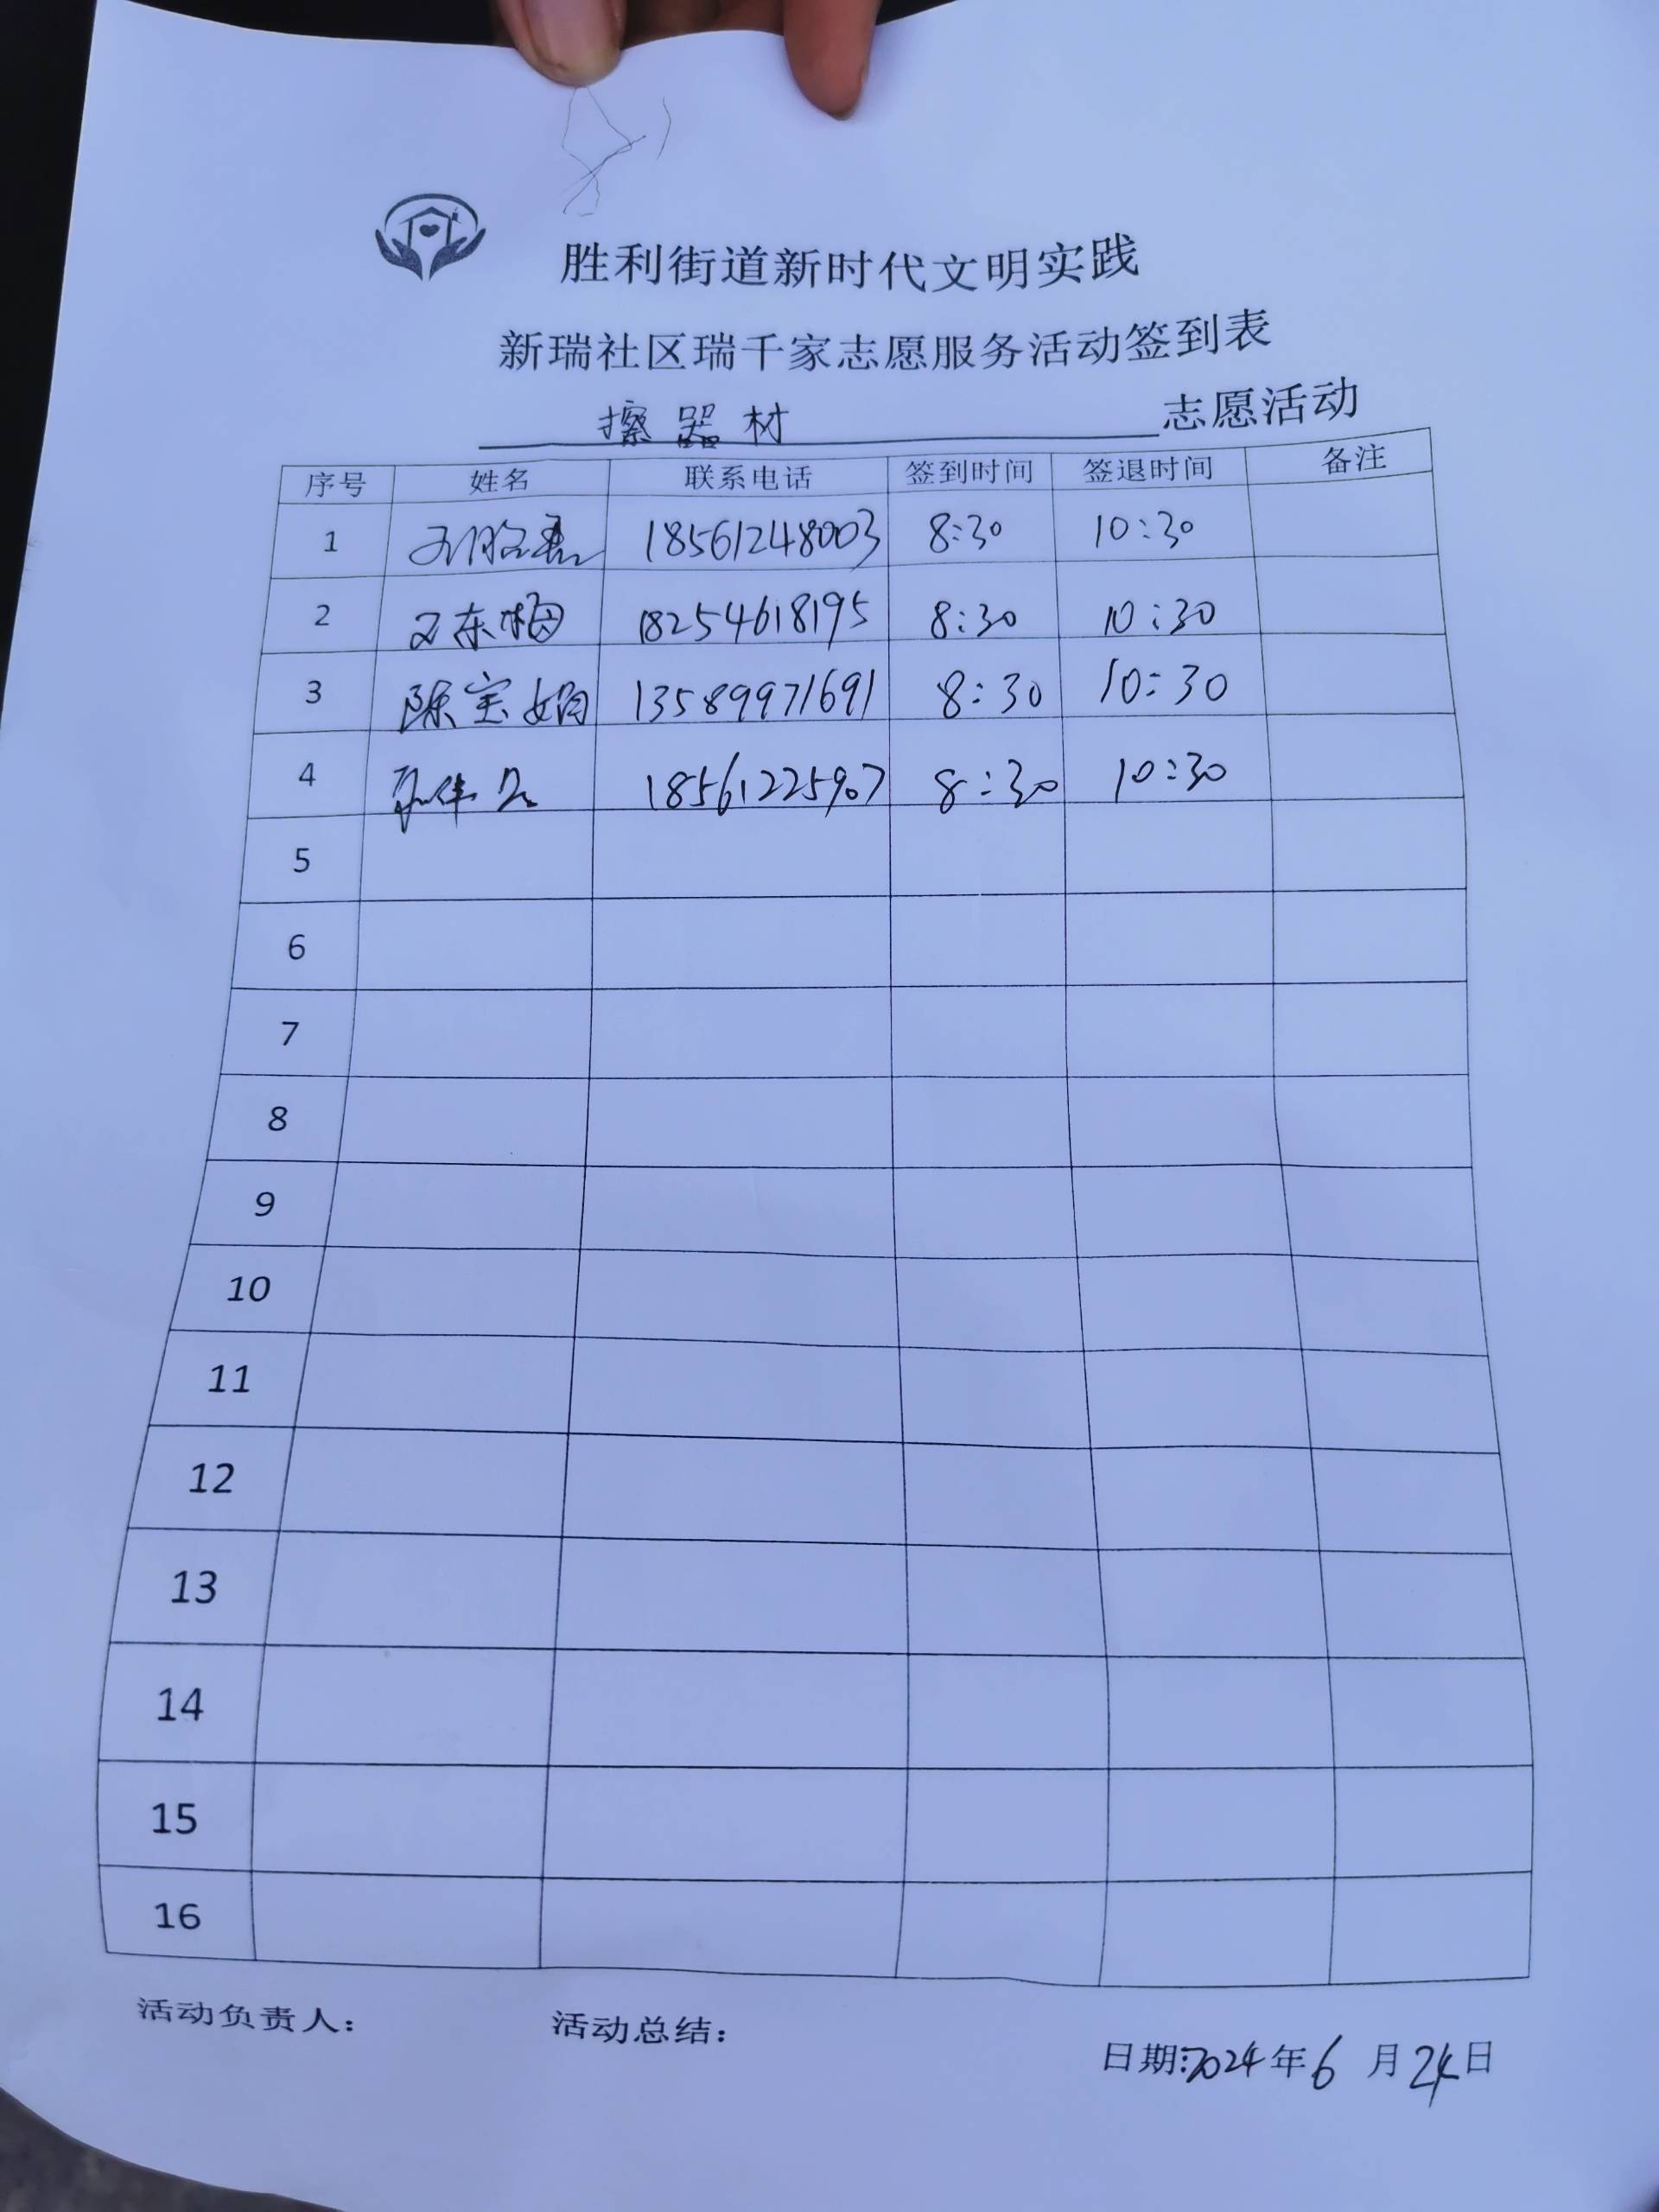 胜利街道新时代文明实践
新瑞社区瑞千家志愿服务活动签到表
擦器材 志愿活动
序号 姓名 联系电话 签到时间 签退时间 备注
1 18561248003 8:30 10:30
2 东梅 18254618195 8:30 10:30
3 陈宝娟 13589971691 8:30 10:30
4 18561225907 8:30 10:30
5
6
7
8
9
10
11
12
13
14
15
16
活动负责人: 活动总结:
日期:2024年6月24日